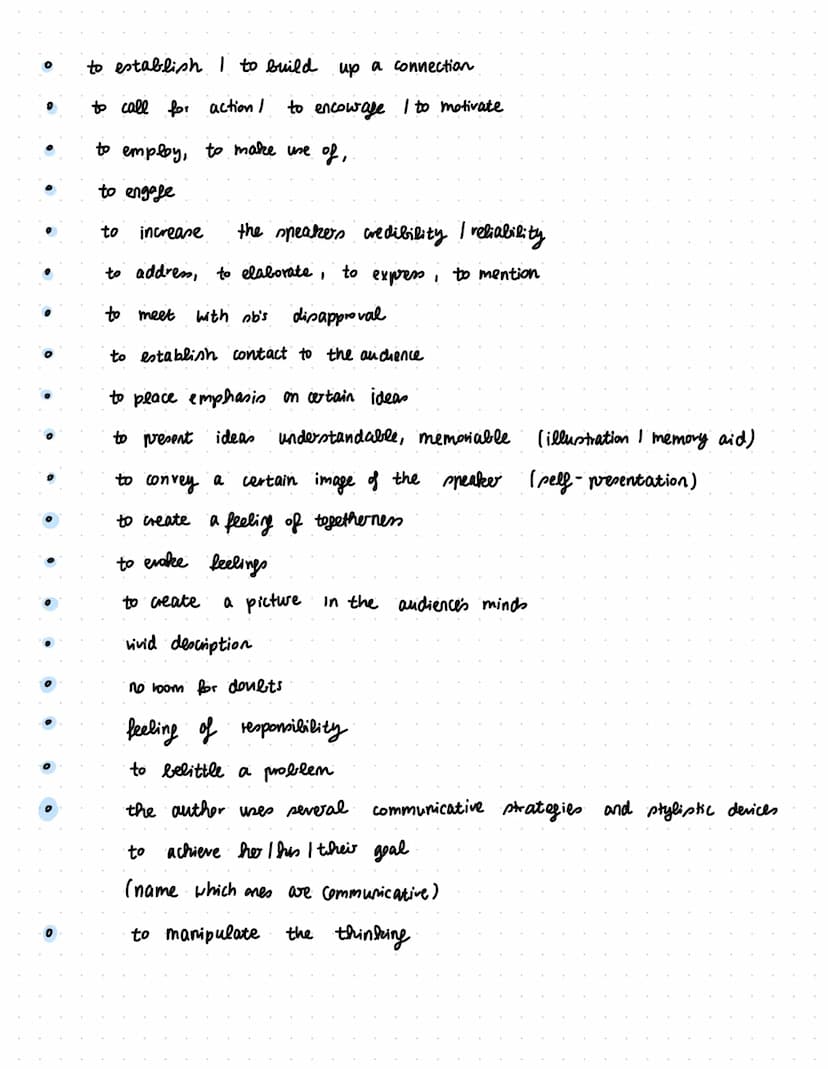 • to establish / to build up a connection
• to call for action / to encourage / to motivate
• to employ, to make use of,
• to engage
• to increase the speakers credibility / reliability
• to address, to elaborate, to express, to mention
• to meet with sb's disapproval
• to establish contact to the audience
• to place emphasis on certain ideas
• to present ideas understandable, memoriable (illustration / memory aid)
• to convey a certain image of the speaker (self-presentation)
• to create a feeling of togetherness
• to evoke feelings
• to create a picture in the audience's minds
• vivid description
• no room for doubts
• feeling of responsibility
• to belittle a problem
• the author uses several communicative strategies and stylistic devices
to achieve her / his / their goal
(name which ones are communicative)
• to manipulate the thinking